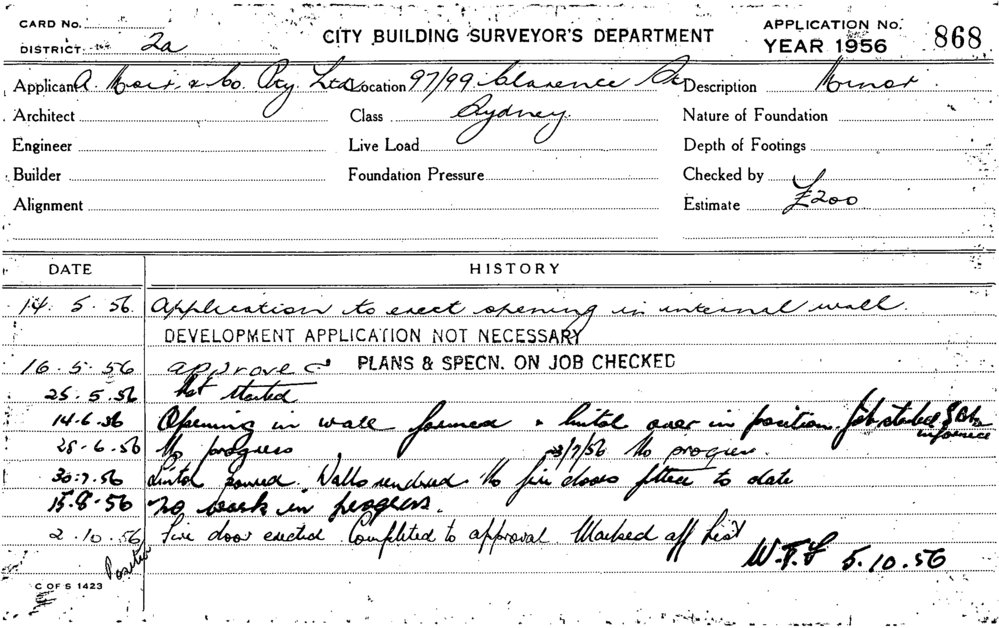 CARD No.
DISTRICT 2a
CITY BUILDING SURVEYOR'S DEPARTMENT
APPLICATION No. 868
YEAR 1956
Applicant A. Moir & Co. Pty. Ltd. Location 97/99 Clarence St Description Minor
Architect Class Sydney. Nature of Foundation
Engineer Live Load Depth of Footings
Builder Foundation Pressure Checked by
Alignment Estimate £200
DATE HISTORY
14. 5. 56. Application to erect opening in internal wall.
DEVELOPMENT APPLICATION NOT NECESSARY
16. 5. 56 approved PLANS & SPECN. ON JOB CHECKED
25. 5. 56 Not started
14.6.56 Opening in wall formed & lintol over in position. Job started
28.6.56 No progress 3/7/56 No progress.
30.7.56 Lintol poured. Walls rendered No fire doors fitted to date
15.8.56 No work in progress.
2.10.56 Fire door erected Completed to approval. Marked off list
W.F.G 5.10.56
Posted
C OF S 1423